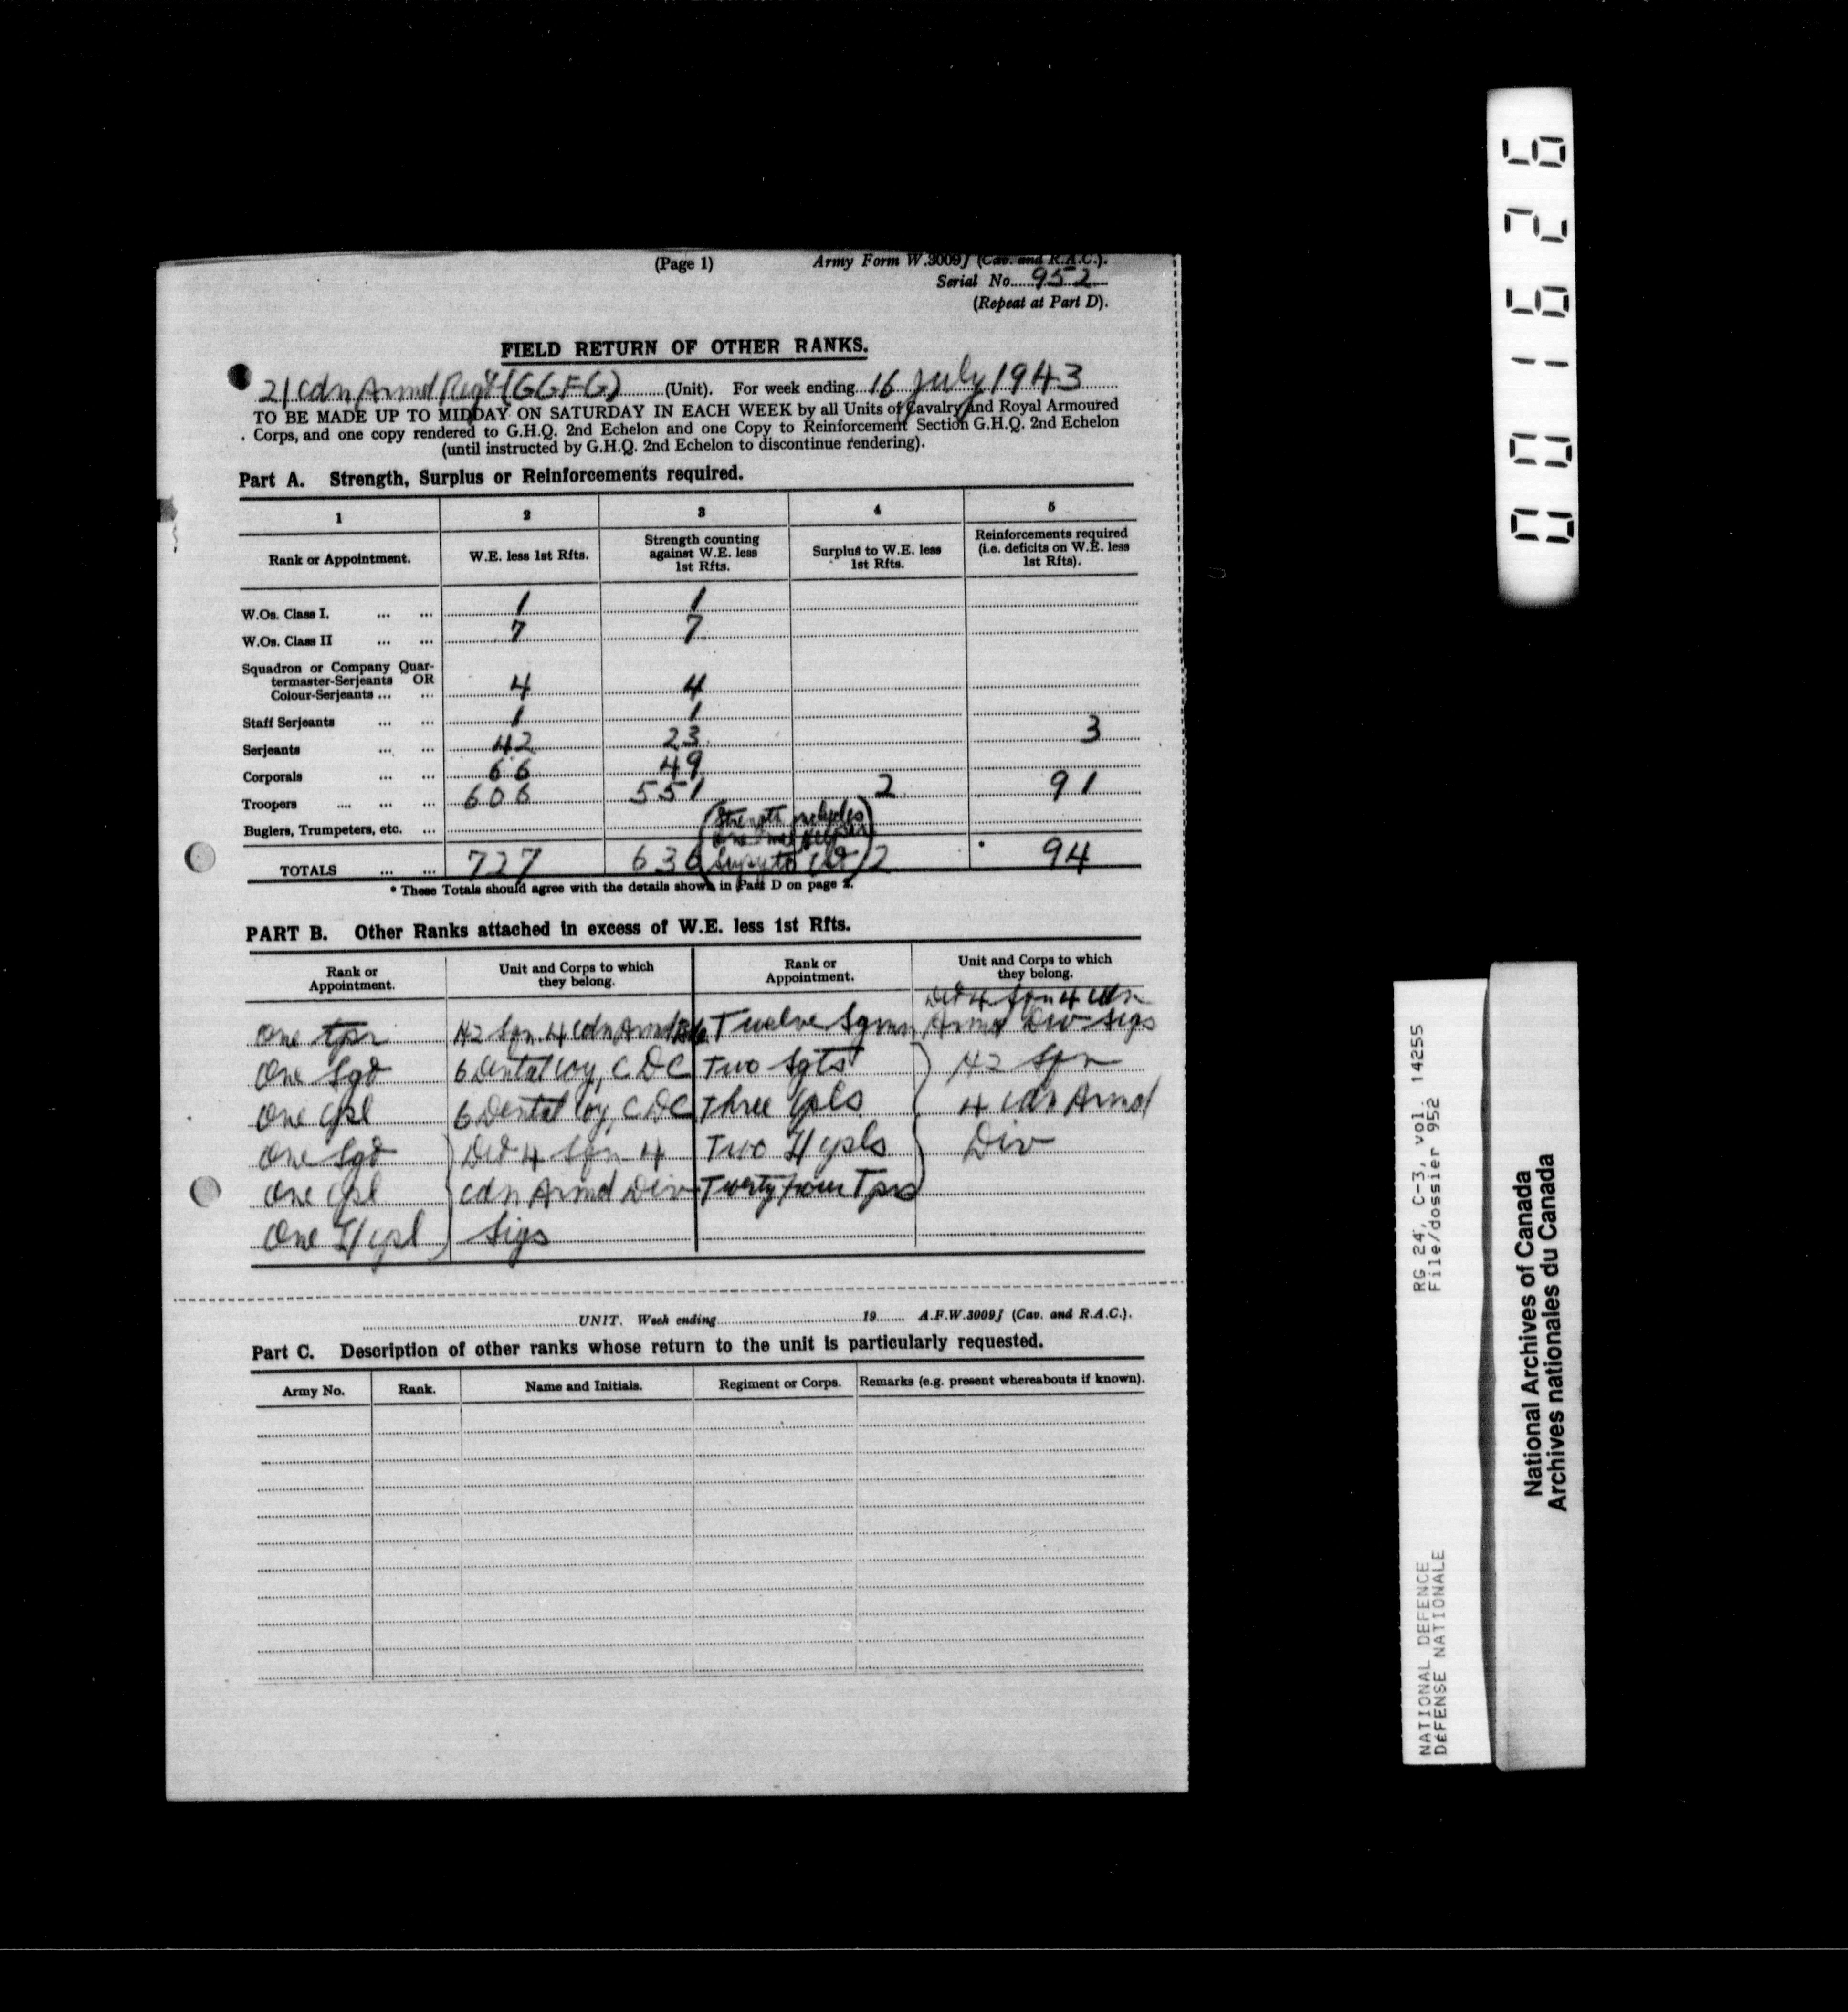 (Page 1) Army Form W.3009J (Cav. and R.A.C.).
Serial No. 952
(Repeat at Part D).
FIELD RETURN OF OTHER RANKS.
21 Cdn Armd Regt (GGFG) (Unit). For week ending 16 July 1943
TO BE MADE UP TO MIDDAY ON SATURDAY IN EACH WEEK by all Units of Cavalry and Royal Armoured
Corps, and one copy rendered to G.H.Q. 2nd Echelon and one Copy to Reinforcement Section G.H.Q. 2nd Echelon
(until instructed by G.H.Q. 2nd Echelon to discontinue rendering).
Part A. Strength, Surplus or Reinforcements required.
1 2 3 4 5
Rank or Appointment. W.E. less 1st Rfts. Strength counting against W.E. less 1st Rfts. Surplus to W.E. less 1st Rfts. Reinforcements required (i.e. deficits on W.E. less 1st Rfts).
W.Os. Class I. ... ... 1 1
W.Os. Class II ... ... 7 7
Squadron or Company Quar-
termaster-Serjeants OR
Colour-Serjeants ... ... 4 4
Staff Serjeants ... ... 1 1
Serjeants ... ... 42 23 3
Corporals ... ... 66 49
Troopers .... ... ... 606 551 2 91
Buglers, Trumpeters, etc. ... (Strength includes
TOTALS ... ... 727 636 2 94
* These Totals should agree with the details shown in Part D on page 2.
PART B. Other Ranks attached in excess of W.E. less 1st Rfts.
Rank or Appointment. Unit and Corps to which they belong. Rank or Appointment. Unit and Corps to which they belong.
Det 4 Sqn 4 Cdn
One tpr H2 Sqn 4 Cdn Armd Bde Twelve Sgmn Armd Div Sigs
One Sgt 6 Dental Coy, CDC Two Sgts H2 Sqn
One Cpl 6 Dental Coy, CDC Three Cpls 4 Cdn Armd
One Sgt Det 4 Sqn 4 Two L/Cpls Div
One Cpl Cdn Armd Div Twenty four Tprs
One L/Cpl Sigs
UNIT. Week ending 19 A.F.W.3009J (Cav. and R.A.C.).
Part C. Description of other ranks whose return to the unit is particularly requested.
Army No. Rank. Name and Initials. Regiment or Corps. Remarks (e.g. present whereabouts if known).
001626
RG 24, C-3, vol. 14255
File/dossier 952
NATIONAL DEFENCE
DÉFENSE NATIONALE
National Archives of Canada
Archives nationales du Canada